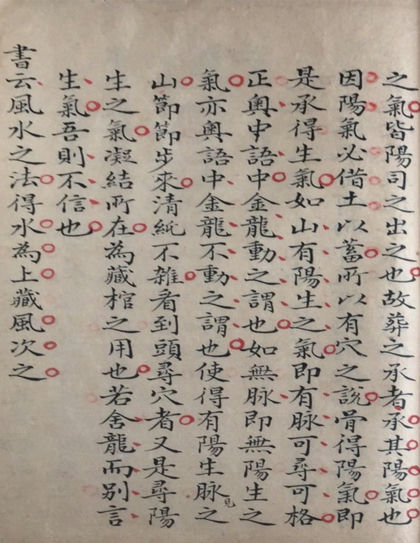 之氣皆陽司之出之也故葬之承者承其陽氣也
因陽氣必借土以蓄所以有穴之說骨得陽氣即
是承得生氣如山有陽生之氣即有脉可尋可格
正奧中語中金龍動之謂也如無脉即無陽生之
氣亦奧語中金龍不動之謂也使得有陽生脉見之
山節節步來清純不雜看到頭尋穴者又是尋陽
生之氣凝結所在為藏棺之用也若舍龍而別言
生氣吾則不信也
書云風水之法得水為上藏風次之